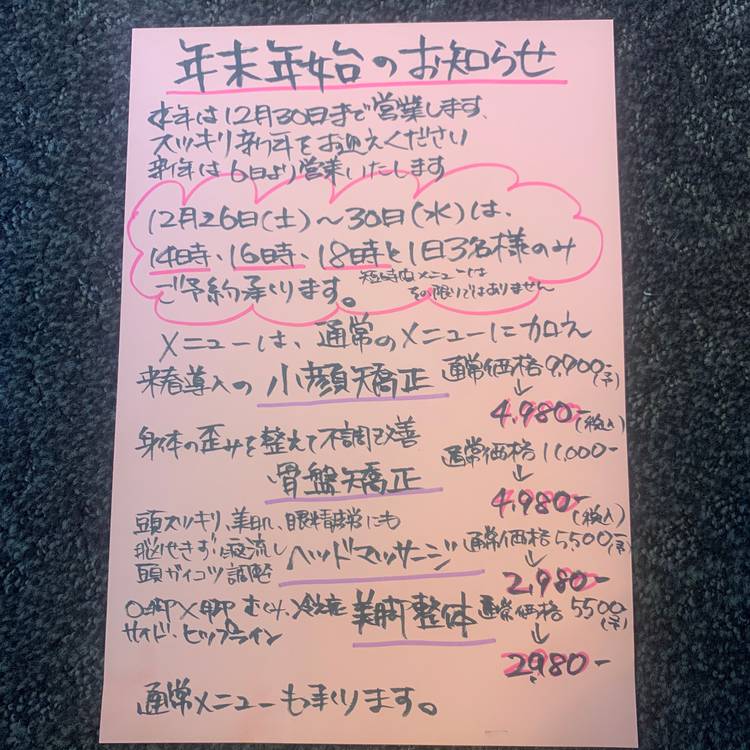 年末年始のお知らせ
本年は12月30日まで営業します、
スッキリ新年をお迎えください
新年は6日より営業いたします
12月26日(土)〜30日(水)は、
14時、16時、18時と1日3名様のみ
ご予約承ります。
短時間メニューは
その限りではありません
メニューは、通常のメニューに加え
来春導入の 小顔矯正 通常価格9,900-(予)
↓
4,980-(税込)
身体の歪みを整えて不調改善
骨盤矯正
通常価格11,000-
↓
4,980-(税込)
頭スッキリ、美肌、眼精疲労にも
脳せきずい液流し
頭ガイコツ調整
ヘッドマッサージ
通常価格5,500-(予)
↓
2,980-
O脚X脚 むくみ、冷え症
サイド・ヒップライン
美脚整体
通常価格5500(予)
↓
2980-
通常メニューも承ります。